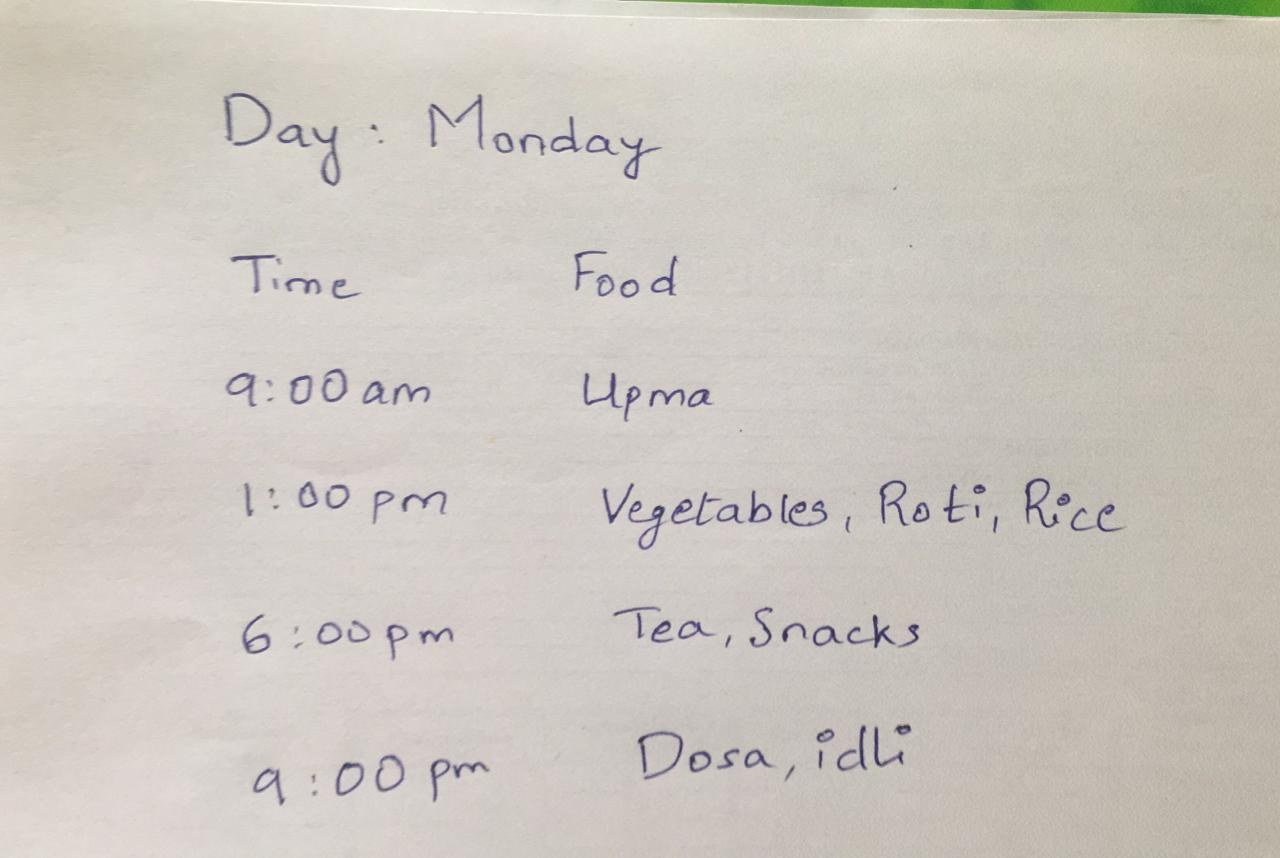 Day: Monday
Time Food
9:00 am Upma
1:00 pm Vegetables, Roti, Rice
6:00 pm Tea, Snacks
9:00 pm Dosa, idli